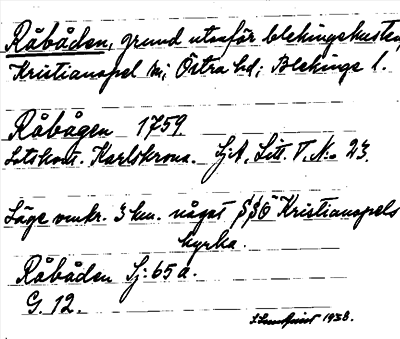 Råbåden, grund utanför blekingskusten,
Kristianopel sn; Östra hd; Blekinge l.
Råbågen 1759
Lotskont. Karlskrona. Sj.A, Litt. T, N:o 23.
Läge omkr. 3 km. något SSÖ Kristianopels
kyrka.
Råbåden Sj: 65 a.
G. 12.
1938.